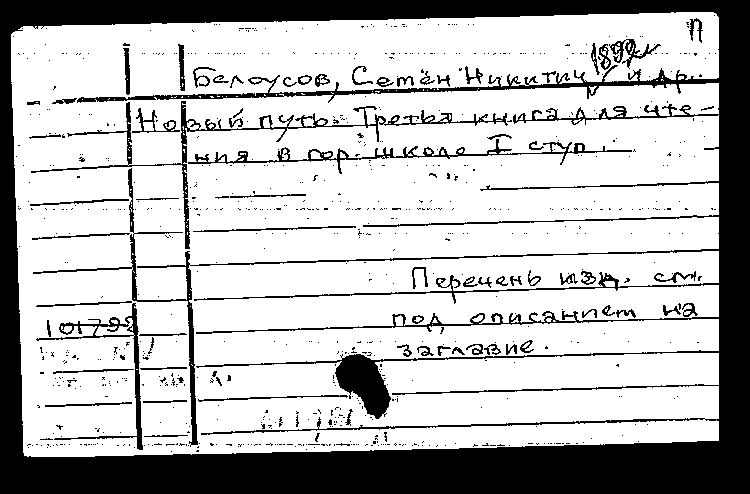 П
1892г
Белоусов, Семён Никитич и др.
Новый путь. Третья книга для чте-
ния в гор. школе I ступ.
Перечень изд. см.
под описанием на
заглавие.